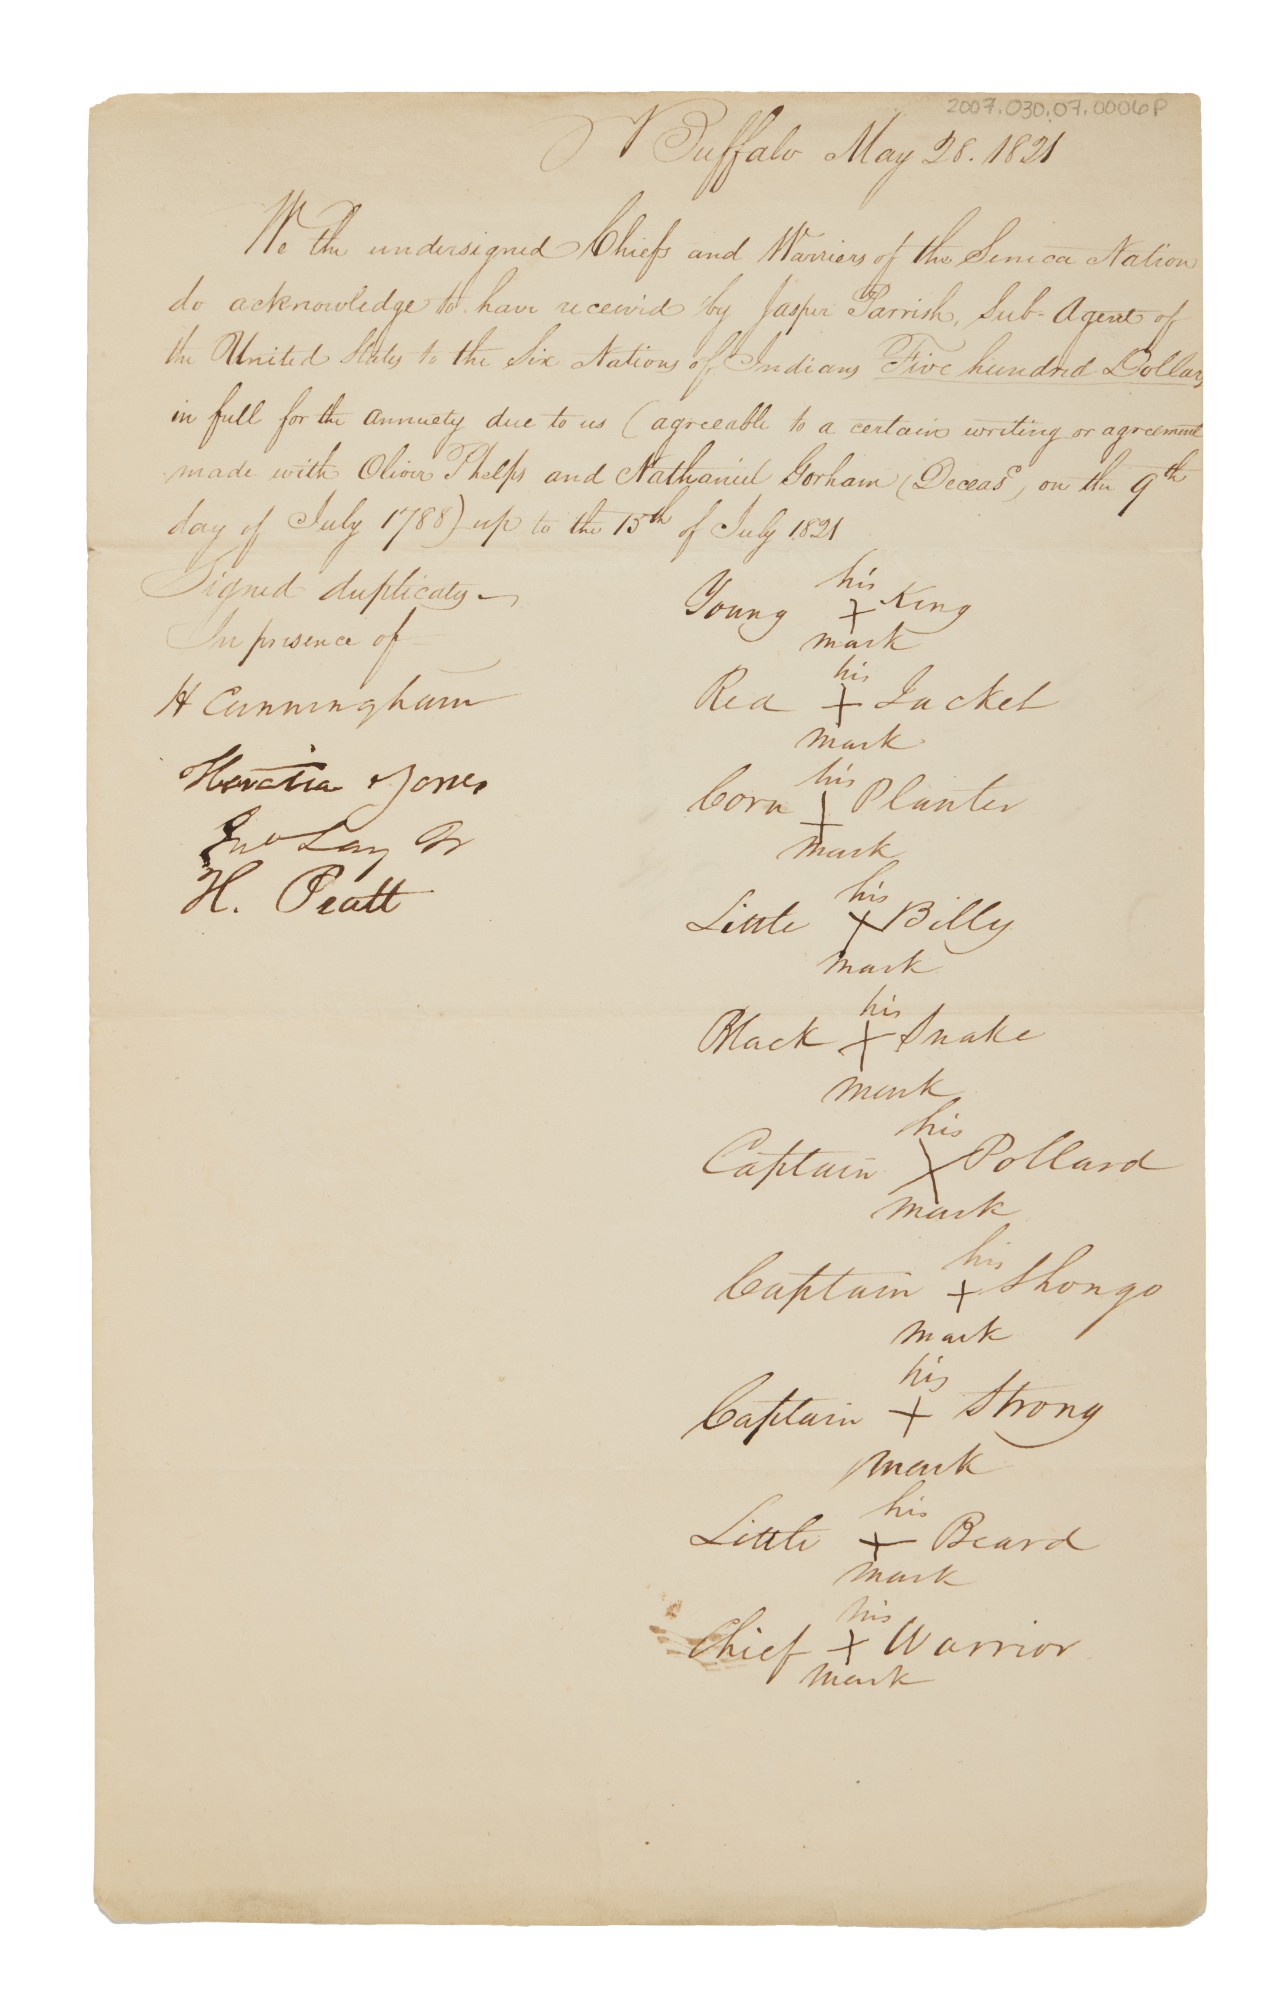 2007.030.07.0006P
Buffalo May 28. 1821
We the undersigned Chiefs and Warriors of the Seneca Nation
do acknowledge to have receiv'd by Jasper Parrish, Sub-Agent of
the United States to the Six Nations of Indians Five hundred Dollars
in full for the annuety due to us (agreeable to a certain writing or agreement
made with Oliver Phelps and Nathaniel Gorham (Deceasd, on the 9th
day of July 1788) up to the 15th of July 1821
Signed duplicates
In presence of
H Cunningham
Horatio Jones
Jno Lay Jr
H. Pratt
his
Young X King
mark
his
Red X Jacket
mark
his
Corn X Planter
mark
his
Little X Billy
mark
his
Black X Snake
mark
his
Captain X Pollard
mark
his
Captain X Shongo
mark
his
Captain X Strong
mark
his
Little X Beard
mark
his
Chief X Warrior
mark